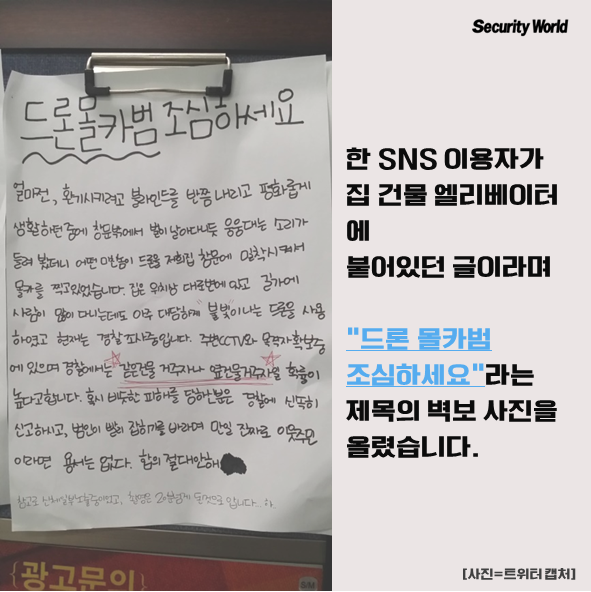 Security World
드론몰카범 조심하세요
얼마전, 환기시키려고 블라인드를 반쯤 내리고 평화롭게
생활하던중에 창문밖에서 벌이 날아다니듯 웅웅대는 소리가
들려 봤더니 어떤 미친놈이 드론을 저희집 창문에 밀착시켜서
몰카를 찍고있었습니다. 집은 위치상 대로변에 있고 길가에
사람이 많이 다니는데도 아주 대담하게 "불빛"이나는 드론을 사용
하였고 현재는 경찰 조사중입니다. 주변CCTV와 목격자확보중
에 있으며 경찰에서는 같은건물 거주자나 옆건물거주자일 확률이
높다고합니다. 혹시 비슷한 피해를 당하신분은 경찰에 신속히
신고하시고, 범인이 빨리 잡히기를 바라며 만일 진짜로 이웃주민
이라면 용서는 없다. 합의 절대안해
참고로 신체일부노출중이었고, 촬영은
{광고문의}
SM
한 SNS 이용자가
집 건물 엘리베이터
에
붙어있던 글이라며
"드론 몰카범
조심하세요"라는
제목의 벽보 사진을
올렸습니다.
[사진=트위터 캡처]